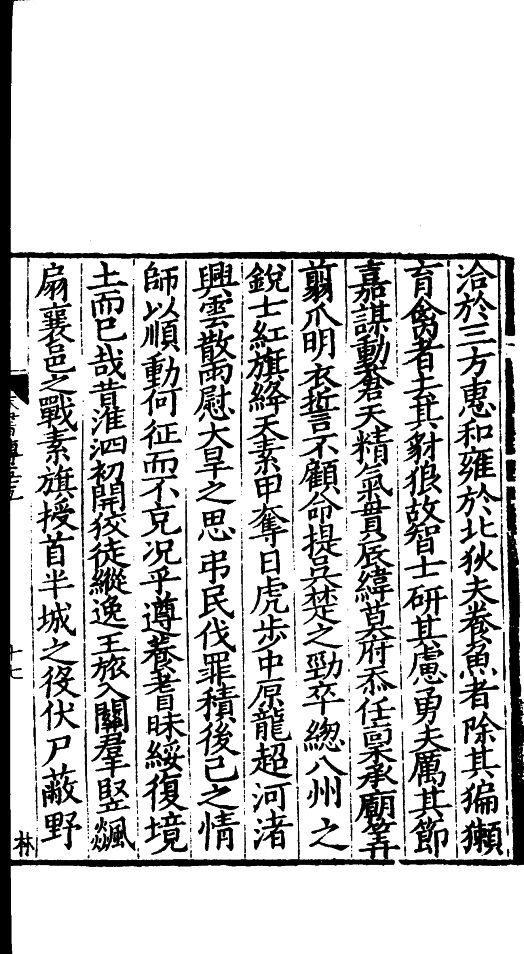 洽於三方惠和雍於北狄夫養魚者除其猵獺
育禽者去其豺狼故智士研其慮勇夫厲其節
嘉謀動蒼天精氣貫辰緯莫府忝任禀承廟筭
翦爪明衣誓不顧命提呉楚之勁卒緫八州之
銳士紅旗絳天素甲奪日虎步中原龍超河渚
興雲散雨慰大旱之思弔民伐罪積後己之情
師以順動何征而不克况乎遵養耆昧綏復境
土而已哉昔淮泗初開狡徒縱逸王旅入關羣竪飈
扇襄邑之戰素旗授首半城之役伏尸蔽野
十七
林